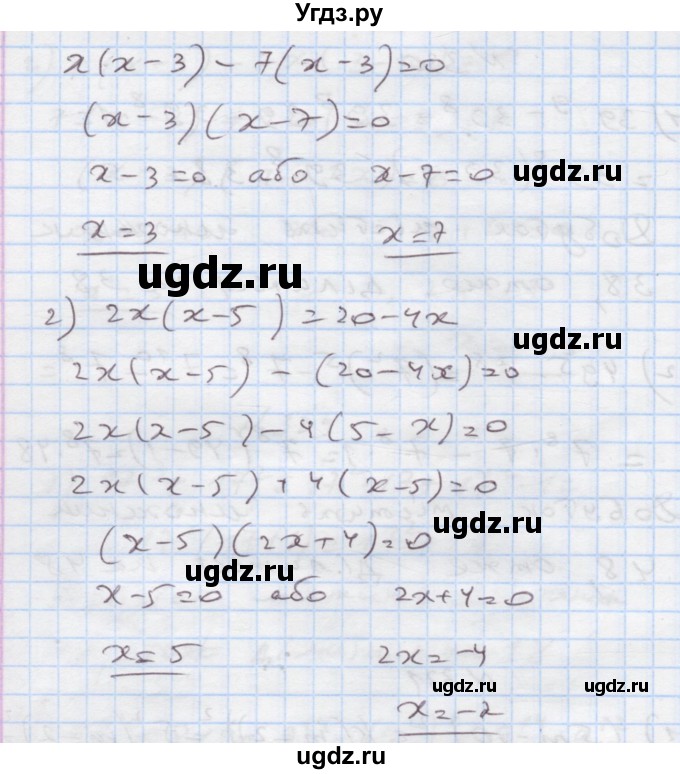 Угдз.ру
x(x-3)-7(x-3)=0
(x-3)(x-7)=0
x-3=0 або x-7=0
ugdz.ru
x=3 x=7
ugdz.ru
2) 2x(x-5)=20-4x
2x(x-5)-(20-4x)=0
ugdz.ru
2x(x-5)-4(5-x)=0
2x(x-5)+4(x-5)=0
ugdz.ru
(x-5)(2x+4)=0
ugdz.ru
x-5=0 або 2x+4=0
x=5 2x=-4
ugdz.ru
x=-2
ugdz.ru
ugdz.ru